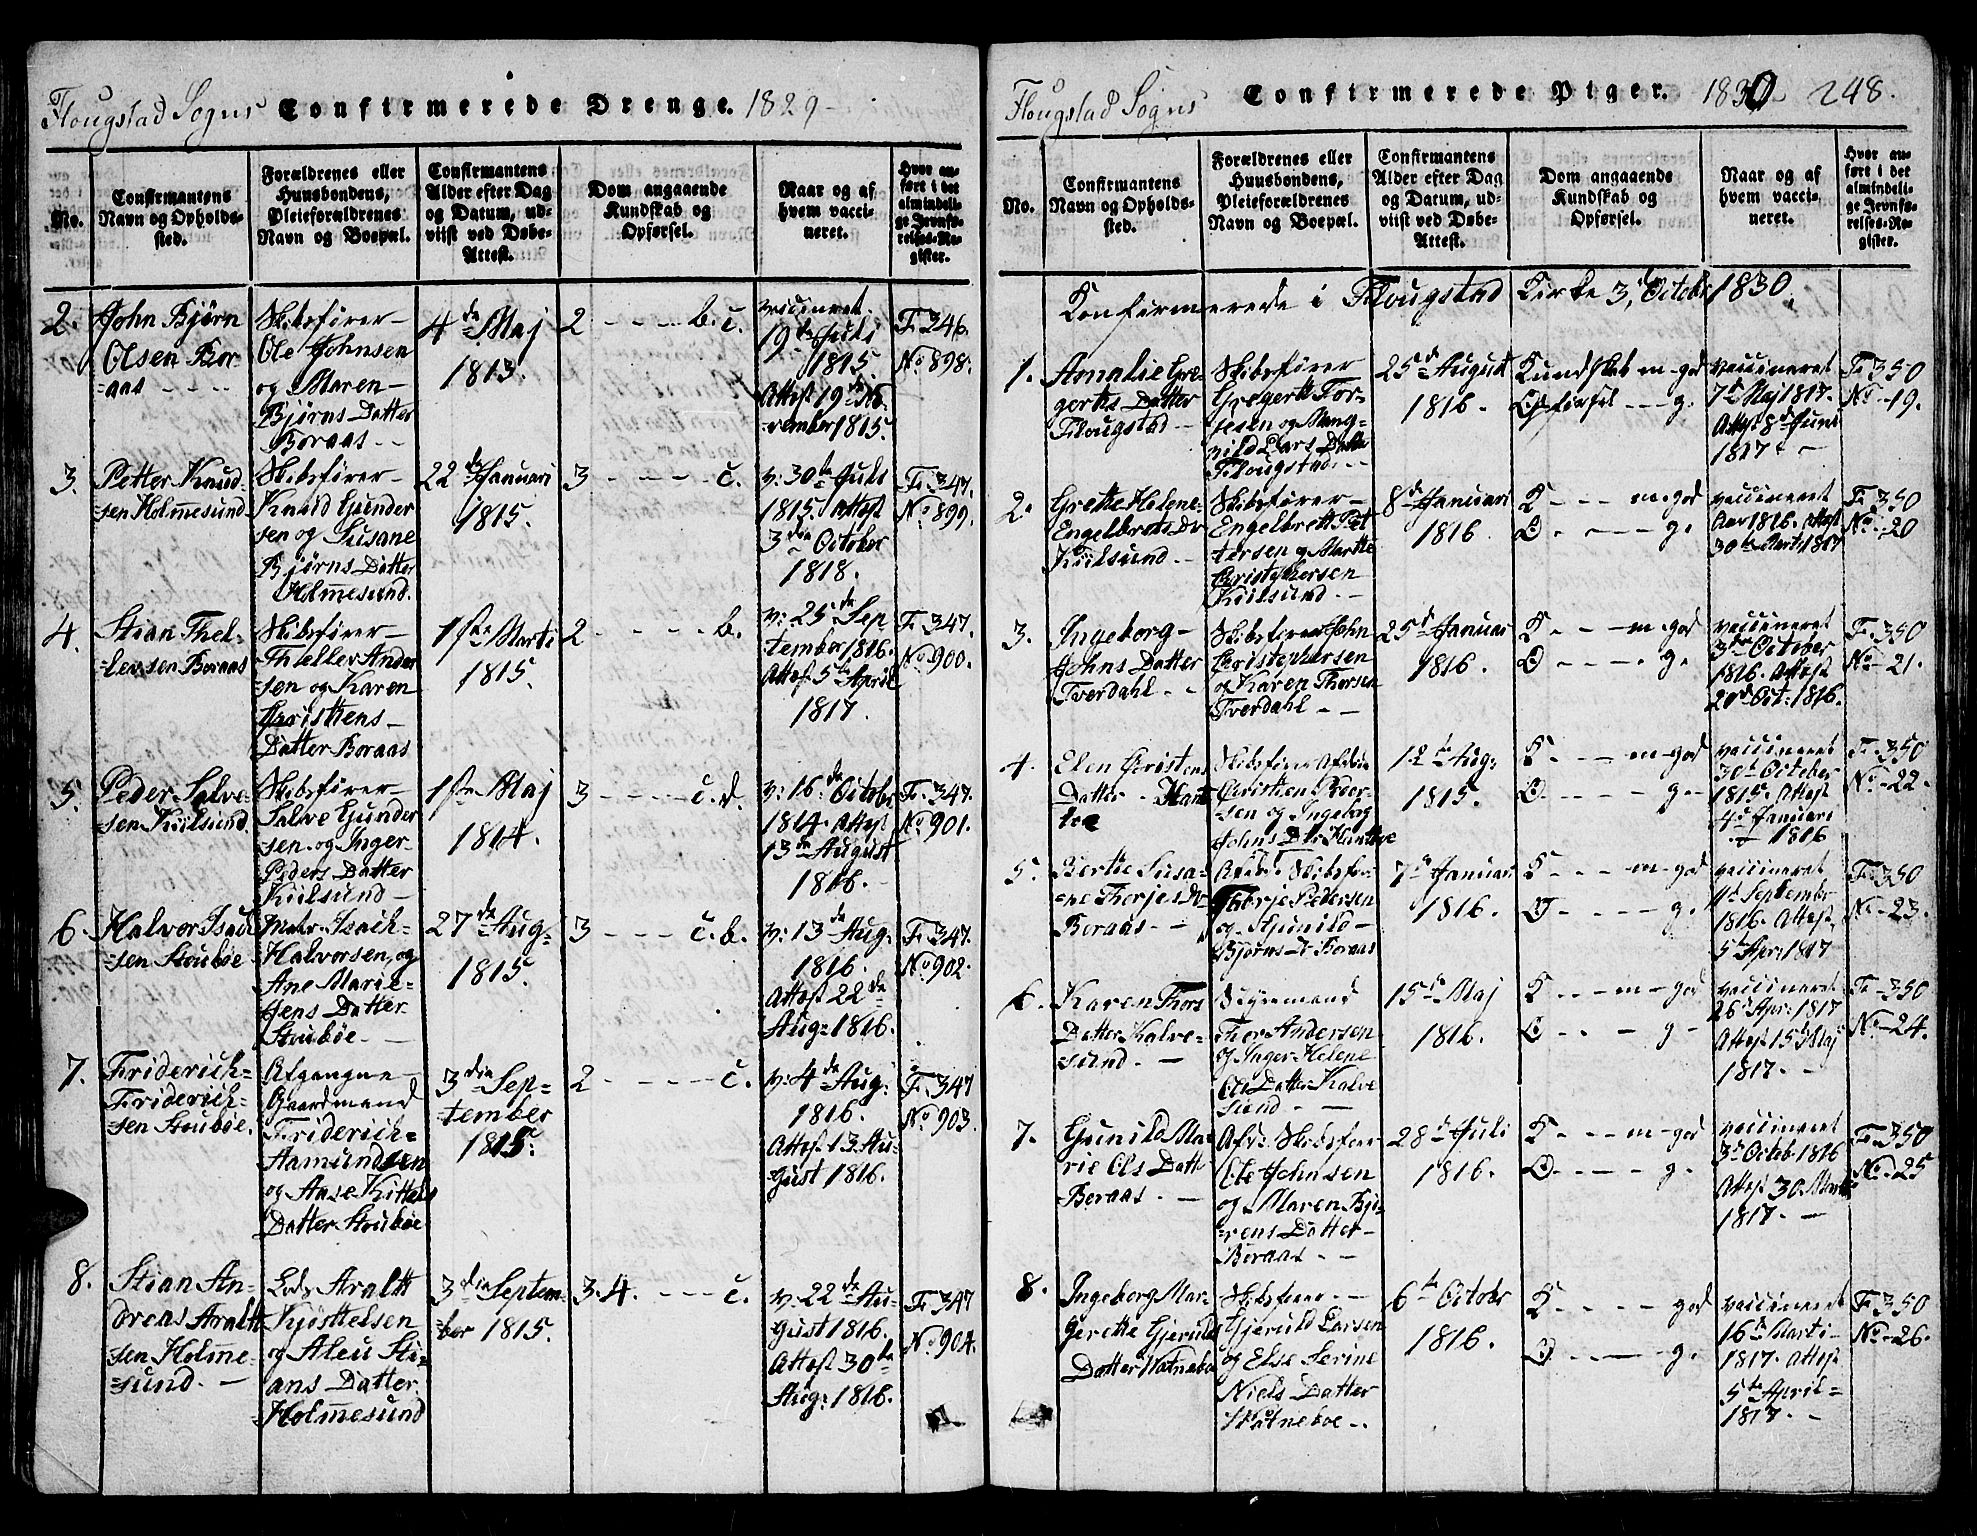 Flougstad Sogns Confirmerede Drenge. 1829
No.
Confirmantens
Navn og Opholds-
sted.
Forældrenes eller
Huusbondens,
Pleieforældrenes
Navn og Boepæl.
Confirmantens
Alder efter Dag
og Datum, ud-
viist ved Døbe-
Attest.
Dom angaaende
Kundskab og
Opførsel.
Naar og af
hvem vacci-
neret.
Hvor an-
ført i det
almindeli-
ge Jevnfø-
relses-Re-
gister.
2.
John Bjørn
Olsen Bor-
=aas
Skibsfører
Ole Johnsen
og Maren
Bjørns Datter
Boraas
4de Maj
1813.
2 - - - - b. c.
vaccineret
19de Juli
1815.
Attest 19de No-
vember 1815.
F. 346.
No 898.
3.
Petter Knud-
sen Holmesund
Skibsfører
Knud Gunder
sen og Susane
Bjørns Datter
Holmesund.
22de Januari
1815.
3 - - - - c.
v: 30te Juli
1815. Attest
3die October
1818.
F. 347.
No 899.
4.
Stian Thel-
levsen Boraas
Skibsfører
Theller Ander
sen og Karen
Christens
Datter Boraas
1ste Marti
1815.
2 - - - - b.
v: 25de Sep
tember 1816.
Attest 5te April
1817.
F. 347.
No 900.
5.
Peder Salve-
sen Kiilsund
Skibsfører
Salve Gunder
sen og Inger
Peders Datter
Kiilsund
1ste Maj
1814.
3 - - - - c. d.
v: 16de Octobr
1814. Attest
13de August
1816.
F. 347.
No 901.
6.
Halvor Isach
sen Stoubøe
Matr. Isach
Halvorsen og
Ane Marie
Jens Datter
Stoubøe
27de Aug=
1815.
3 - - - c. b.
v: 13de Aug:
1816.
Attest 22de
Aug= 1816.
F. 347.
No 902.
7.
Friderich=
Friderich=
sen Stoubøe.
Afgangne
Gaardmand
Friderich=
Aamundsen
og Aase Kittels
Datter Stoubøe
3die Sep=
tember
1815.
2 - - - - c.
v: 4de Aug:
1816.
Attest 13 Au-
gust 1816.
F. 347
No 903.
8.
Stian An-
dreas Araltt
sen Holme-
sund.
Lods Araltt
Kjøttelsen
og Aleu Sti-
ans Datter
Holmesund
3die Septem-
ber 1815.
3. 4. - - - c.
v: 22de Au-
gust 1816.
Attest 30te
Aug: 1816.
F. 347
No 904.
Flougstad Sogns Confirmerede Piger. 1830 248.
No.
Confirmantens
Navn og Opholds-
sted.
Forældrenes eller
Huusbondens,
Pleieforældrenes
Navn og Boepæl.
Confirmantens
Alder efter Dag
og Datum, ud-
viist ved Døbe-
Attest.
Dom angaaende
Kundskab og
Opførsel.
Naar og af
hvem vacci-
neret.
Hvor an-
ført i det
almindeli-
ge Jevnfø-
relses-Re-
gister.
Konfirmerede i Flougstad Kirke 3de October 1830.
1.
Amalie Gre-
gerts Datter
Flougstad
Skibsfører
Gregertt Tor-
jesen og Mang-
nild Lars Datter
Flougstad
25de August
1816.
Kundskab m-god
Opførsel - - g.
vaccineret
7de Maj 1817.
Attest 8de Juni
1817.
F. 350
No 19.
2.
Grethe Helene
Engelbrets Dr
Kiilsund
Skibsfører
Engelbrett Pet
tersen og Marthe
Christophersen
Kiilsund
8de Januari
1816
K - - - m-god
O - - - g.
vaccineret
Aar 1816. Attest
30te Marti 1817
F. 350
No 20
3.
Ingeborg
Johns Datter
Tverdahl
Skibsfører John
Christophersen
og Karen Thorsen
Tverdahl
25de Januar
1816.
K - - - m-god
O - - - - g.
vaccineret
3die October
1816. Attest
20de Oct: 1816.
F. 350
No 21.
4.
Elen Christens
Datter
12te Aug:
1815.
K - - - m-god
O - - - - g.
Christen
sen og Ingeborg
Johns Dtr
vaccineret
30te October
1815. Attest
4de Januari
1816
F. 350
No 22.
5.
Susa-
ne Thorjes Dr
Boraas
Afdø. Skibsfø.
Thorje Pedersen
og Gunild
Bjørns Dr Boraas
7de Januari
1816.
K - - - m-god
O - - - - g.
vaccineret
4de September
1816. Attest
5te Apr: 1817
F. 350
No 23.
6.
Karen Thors
Datter Kalve-
sund.
Styrmand
Thor Andersen
og Inger Helene
Ols Datter Kalve
sund
15de Maj
1816.
K - - - m-god
O - - - g
vaccineret
26de Apr: 1817
Attest 15de Maj
1817.
F. 350
No 24.
7.
Gunild Ma-
rie Ols Datt
Boraas.
Afdø. Skibsfører
Ole Johnsen
og Maren Bjø-
rens Datter
Boraas
28de Juli
1816.
K - - - m-god
O - - - - g.
vaccineret
3de Octob. 1816
Attest 30. Marti
1817.
F. 350
No 25
8.
Ingeborg Mar-
grette Gjeruld
Datter
Skibsfører
Gjeruld Larsen
og Else Serine
Niels Datter
6te Octobr
1816.
K - - - - god
O - - - - g.
vaccineret
16de Marti
1817. Attest
5te April
1817.
F. 350
No 26.